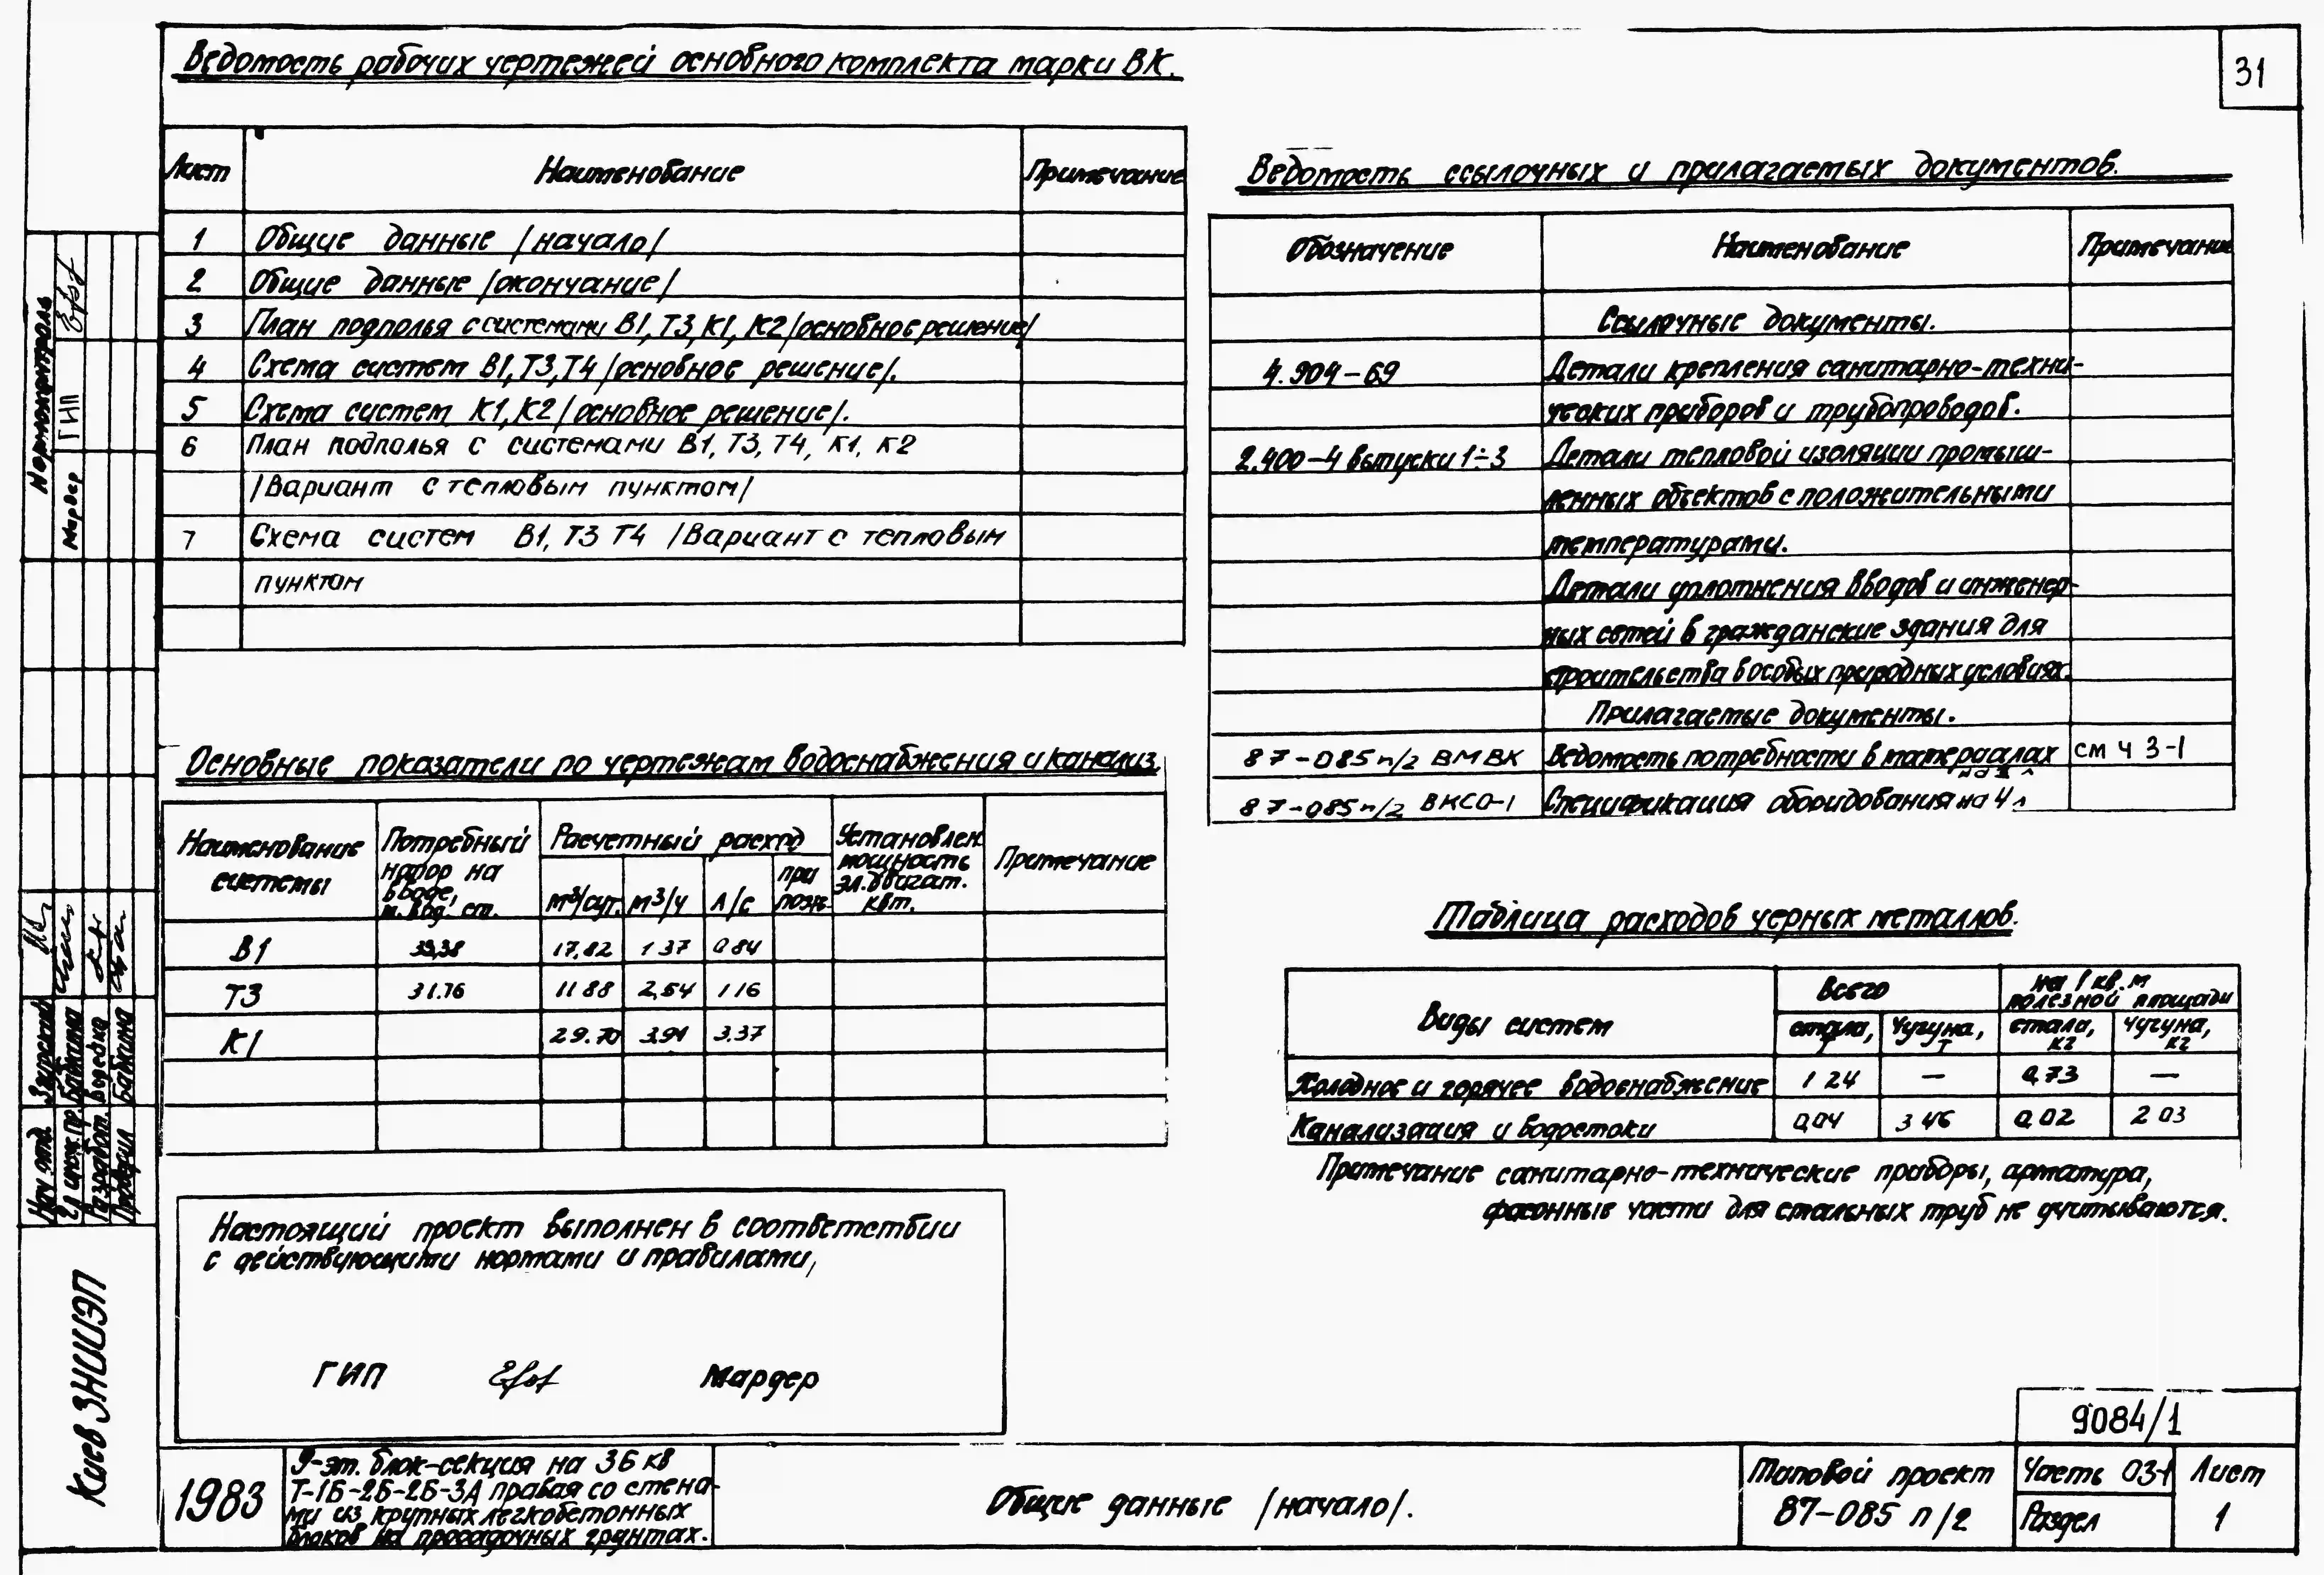 31
Ведомость рабочих чертежей основного комплекта марки ВК.
Лист Наименование Примечание
1 Общие данные /начало/
2 Общие данные /окончание/
3 План подполья с системами В1, Т3, К1, К2 /основное решение/
4 Схема систем В1, Т3, Т4 /основное решение/.
5 Схема систем К1, К2 /основное решение/.
6 План подполья с системами В1, Т3, Т4, К1, К2
/Вариант с тепловым пунктом/
7 Схема систем В1, Т3 Т4 /Вариант с тепловым
пунктом
Ведомость ссылочных и прилагаемых документов.
Обозначение Наименование Примечание
Ссылочные документы.
4.904-69 Детали крепления санитарно-техни-
ческих приборов и трубопроводов.
2.400-4 выпуски 1÷3 Детали тепловой изоляции промыш-
ленных объектов с положительными
температурами.
Детали уплотнения вводов и инженер-
ных сетей в гражданские здания для
строительства в особых природных условиях.
Прилагаемые документы.
87-085 п/2 ВМВК Ведомость потребности в материалах см ч 3-1
87-085 п/2 ВКСО-1 Спецификация оборудования на 4 л
Основные показатели по чертежам водоснабжения и канализ.
Наименование системы
Потребный напор на вводе, м. вод. ст.
Расчетный расход
м³/сут. м³/ч л/с при пож.
Установлен. мощность эл.двигат. квт.
Примечание
В1 39,38 17,82 1 37 0 84
Т3 31.76 11 88 2,54 1 16
К1 29.70 3.91 3.37
Таблица расходов черных металлов.
Виды систем
Всего
на 1 кв. м полезной площади
стали, т чугуна, т стали, кг чугуна, кг
Холодное и горячее водоснабжение 1 24 — 0,73 —
Канализация и водостоки 0,04 3 46 0,02 2 03
Примечание санитарно-технические приборы, арматура,
фасонные части для стальных труб не учитываются.
Настоящий проект выполнен в соответствии
с действующими нормами и правилами,
ГИП Мардер
Нормоконтроль
ГИП
Мардер
Нач отд.
Гл инж. пр. Бабкина
Разработ.
Проверил Бабкина
Киев ЗНИИЭП
1983
9-эт. блок-секция на 36 кв
Т-1Б-2Б-2Б-3А правая со стена-
ми из крупных легкобетонных
блоков на просадочных грунтах.
Общие данные /начало/.
9084/1
Типовой проект
87-085 п/2
Часть 03-1
Раздел
Лист
1